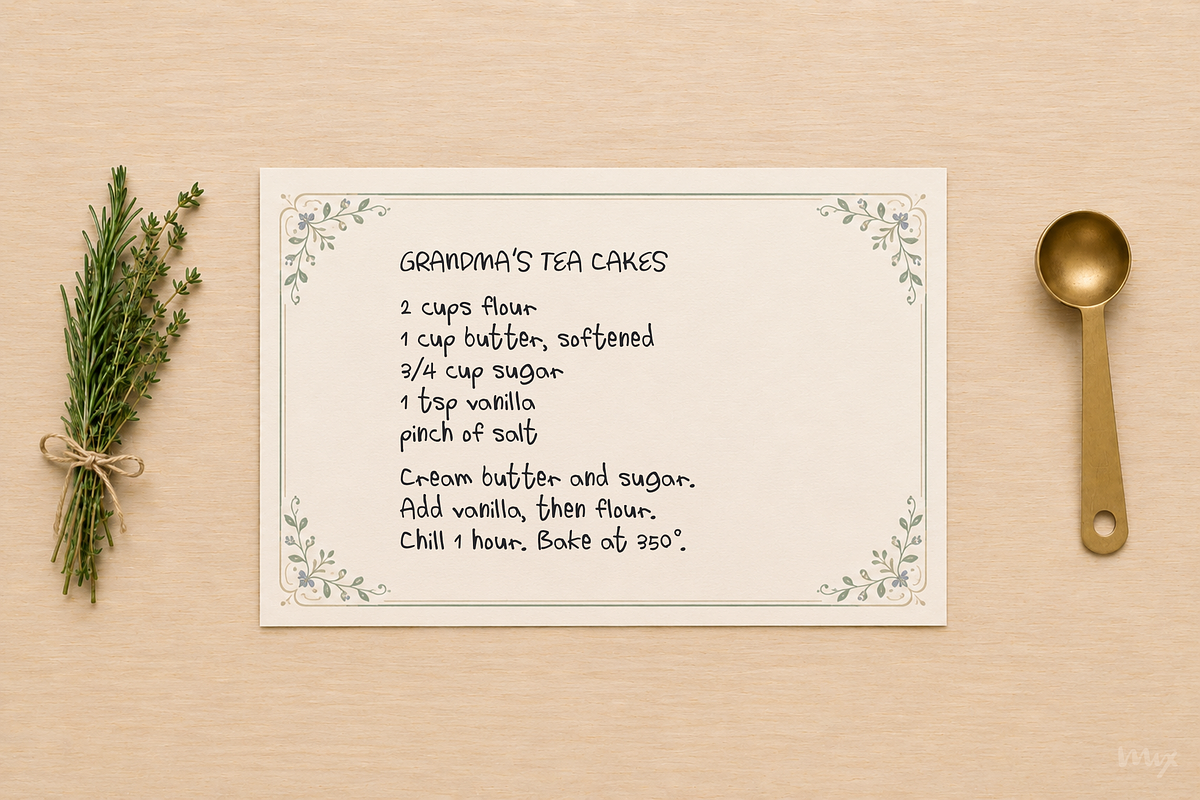 GRANDMA'S TEA CAKES
2 cups flour
1 cup butter, softened
3/4 cup sugar
1 tsp vanilla
pinch of salt
Cream butter and sugar.
Add vanilla, then flour.
Chill 1 hour. Bake at 350°.